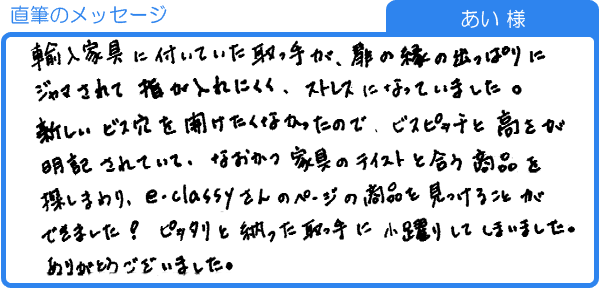 直筆のメッセージ
あい 様
輸入家具に付いていた取っ手が、扉の縁の出っぱりに
ジャマされて指が入れにくく、ストレスになっていました。
新しいビス穴を開けたくなかったので、ビスピッチと高さが
明記されていて、なおかつ家具のテイストと合う商品を
探しまわり、e-classyさんのページの商品を見つけることが
できました! ピッタリと納った取っ手に小躍りしてしまいました。
ありがとうございました。